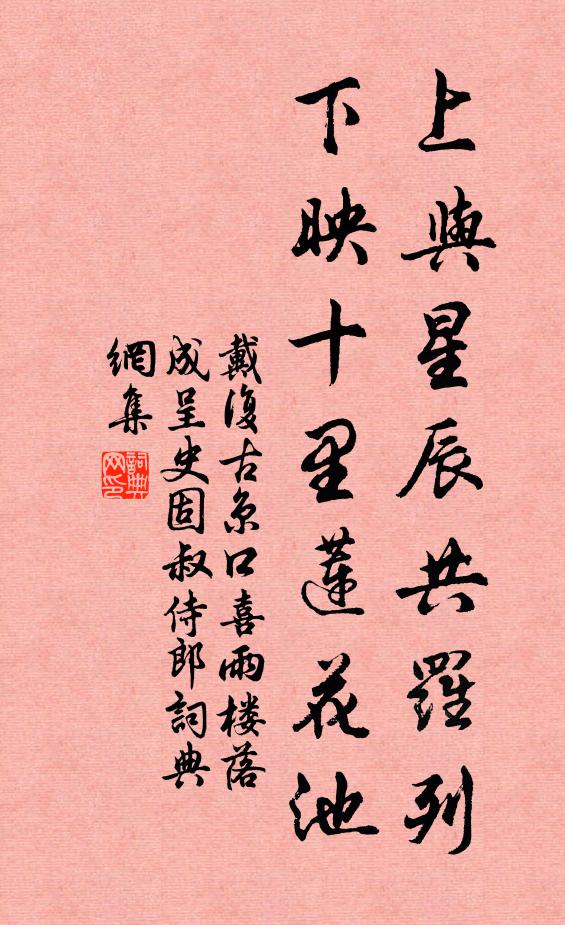 上與星辰共羅列
下映十里蓮花池
戴復古京口喜雨楼落
成呈史固叔侍郎詞典
網集
詞典
网印